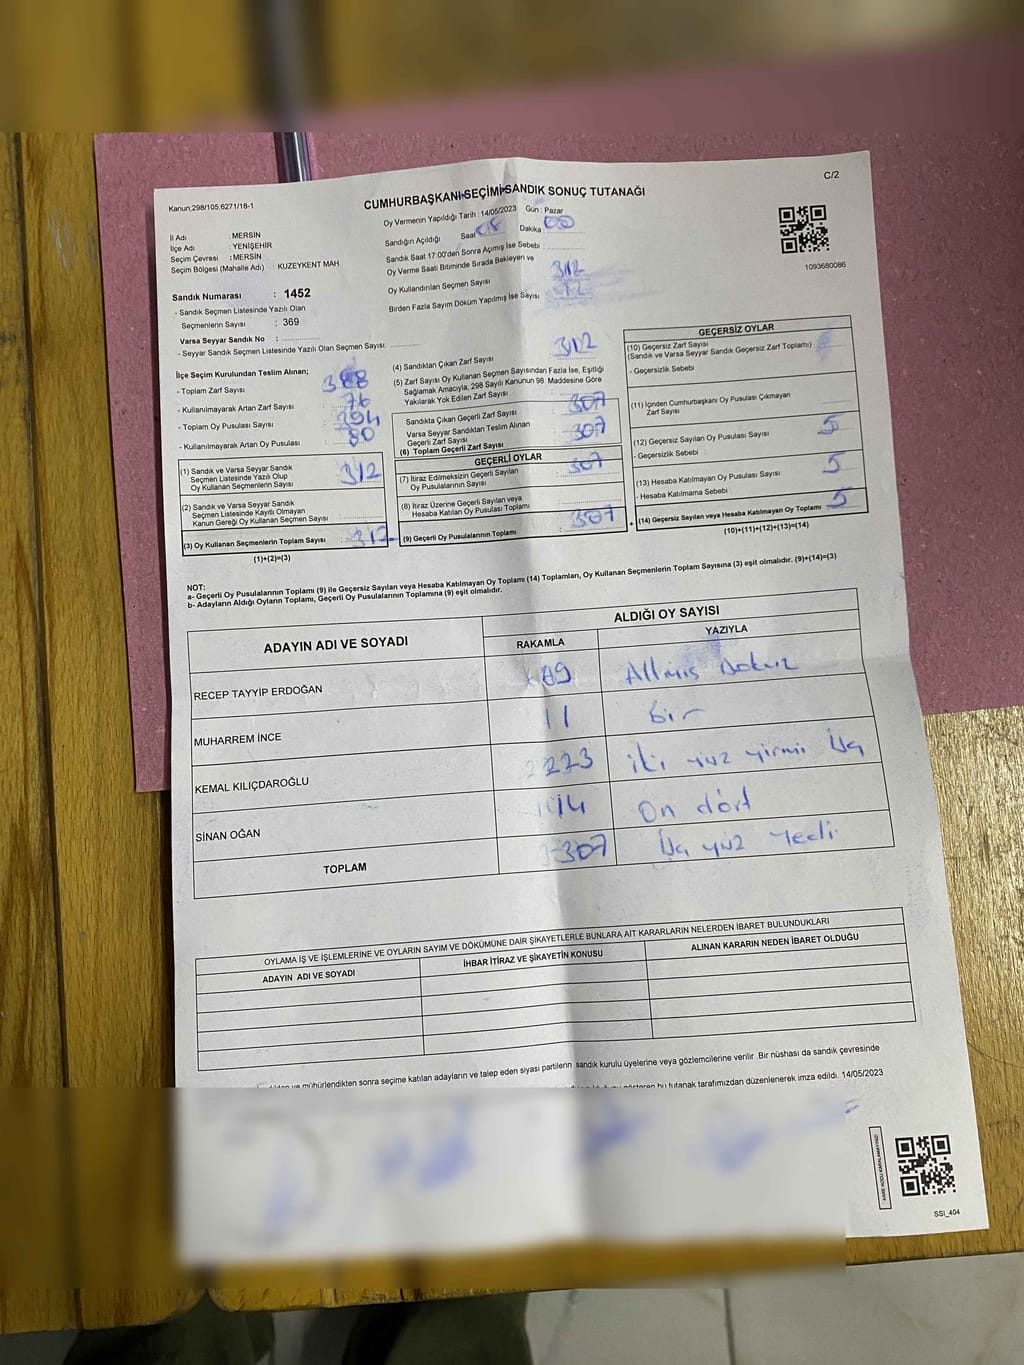 C/2
Kanun;298/105,6271/18-1
CUMHURBAŞKANI SEÇİMİ SANDIK SONUÇ TUTANAĞI
Oy Vermenin Yapıldığı Tarih : 14/05/2023 Gün : Pazar
İl Adı : MERSİN
İlçe Adı : YENİŞEHİR
Seçim Çevresi : MERSİN
Seçim Bölgesi (Mahalle Adı) : KUZEYKENT MAH.
Sandık Numarası : 1452
- Sandık Seçmen Listesinde Yazılı Olan
Seçmenlerin Sayısı : 369
Varsa Seyyar Sandık No :
- Seyyar Sandık Seçmen Listesinde Yazılı Olan Seçmen Sayısı:
Sandığın Açıldığı Saat Dakika 00
Sandık Saat 17.00'den Sonra Açımış İse Sebebi :
Oy Verme Saati Bitiminde Sırada Bekleyen ve
Oy Kullandırılan Seçmen Sayısı 312
Birden Fazla Sayım Döküm Yapılmış İse Sayısı
1093680086
İlçe Seçim Kurulundan Teslim Alınan;
- Toplam Zarf Sayısı
- Kullanılmayarak Artan Zarf Sayısı : 76
- Toplam Oy Pusulası Sayısı : 394
- Kullanılmayarak Artan Oy Pusulası : 80
(1) Sandık ve Varsa Seyyar Sandık
Seçmen Listesinde Yazılı Olup
Oy Kullanan Seçmenlerin Sayısı : 312
(2) Sandık ve Varsa Seyyar Sandık
Seçmen Listesinde Kayıtlı Olmayan
Kanun Gereği Oy Kullanan Seçmen Sayısı :
(3) Oy Kullanan Seçmenlerin Toplam Sayısı : 312
(1)+(2)=(3)
(4) Sandıktan Çıkan Zarf Sayısı : 312
(5) Zarf Sayısı Oy Kullanan Seçmen Sayısından Fazla İse, Eşitliği
Sağlamak Amacıyla, 298 Sayılı Kanunun 98. Maddesine Göre
Yakılarak Yok Edilen Zarf Sayısı
Sandıkta Çıkan Geçerli Zarf Sayısı : 307
Varsa Seyyar Sandıktan Teslim Alınan
Geçerli Zarf Sayısı
(6) Toplam Geçerli Zarf Sayısı : 307
GEÇERLİ OYLAR
(7) İtiraz Edilmeksizin Geçerli Sayılan
Oy Pusulalarının Sayısı : 307
(8) İtiraz Üzerine Geçerli Sayılan veya
Hesaba Katılan Oy Pusulası Toplamı
(9) Geçerli Oy Pusulalarının Toplamı : 307
GEÇERSİZ OYLAR
(10) Geçersiz Zarf Sayısı
(Sandık ve Varsa Seyyar Sandık Geçersiz Zarf Toplamı) :
- Geçersizlik Sebebi
(11) İçinden Cumhurbaşkanı Oy Pusulası Çıkmayan
Zarf Sayısı
(12) Geçersiz Sayılan Oy Pusulası Sayısı : 5
- Geçersizlik Sebebi
(13) Hesaba Katılmayan Oy Pusulası Sayısı : 5
- Hesaba Katılmama Sebebi
+ (14) Geçersiz Sayılan veya Hesaba Katılmayan Oy Toplamı : 5
(10)+(11)+(12)+(13)=(14)
NOT:
a- Geçerli Oy Pusulalarının Toplamı (9) ile Geçersiz Sayılan veya Hesaba Katılmayan Oy Toplamı (14) Toplamları, Oy Kullanan Seçmenlerin Toplam Sayısına (3) eşit olmalıdır. (9)+(14)=(3)
b- Adayların Aldığı Oyların Toplamı, Geçerli Oy Pusulalarının Toplamına (9) eşit olmalıdır.
ADAYIN ADI VE SOYADI ALDIĞI OY SAYISI
RAKAMLA YAZIYLA
RECEP TAYYİP ERDOĞAN Altmış Dokuz
MUHARREM İNCE bir
KEMAL KILIÇDAROĞLU 223 iki yüz yirmi Üç
SİNAN OĞAN 14 On dört
TOPLAM 307 Üç yüz yedi
OYLAMA İŞ VE İŞLEMLERİNE VE OYLARIN SAYIM VE DÖKÜMÜNE DAİR ŞİKAYETLERLE BUNLARA AİT KARARLARIN NELERDEN İBARET BULUNDUKLARI
ADAYIN ADI VE SOYADI İHBAR İTİRAZ VE ŞİKAYETİN KONUSU ALINAN KARARIN NEDEN İBARET OLDUĞU
ve mühürlendikten sonra seçime katılan adayların ve talep eden siyasi partilerin sandık kurulu üyelerine veya gözlemcilerine verilir .Bir nüshası da sandık çevresinde
bu tutanak tarafımızdan düzenlenerek imza edildi. 14/05/2023
KARE KODU KARALAMAYINIZ!
SSI_404